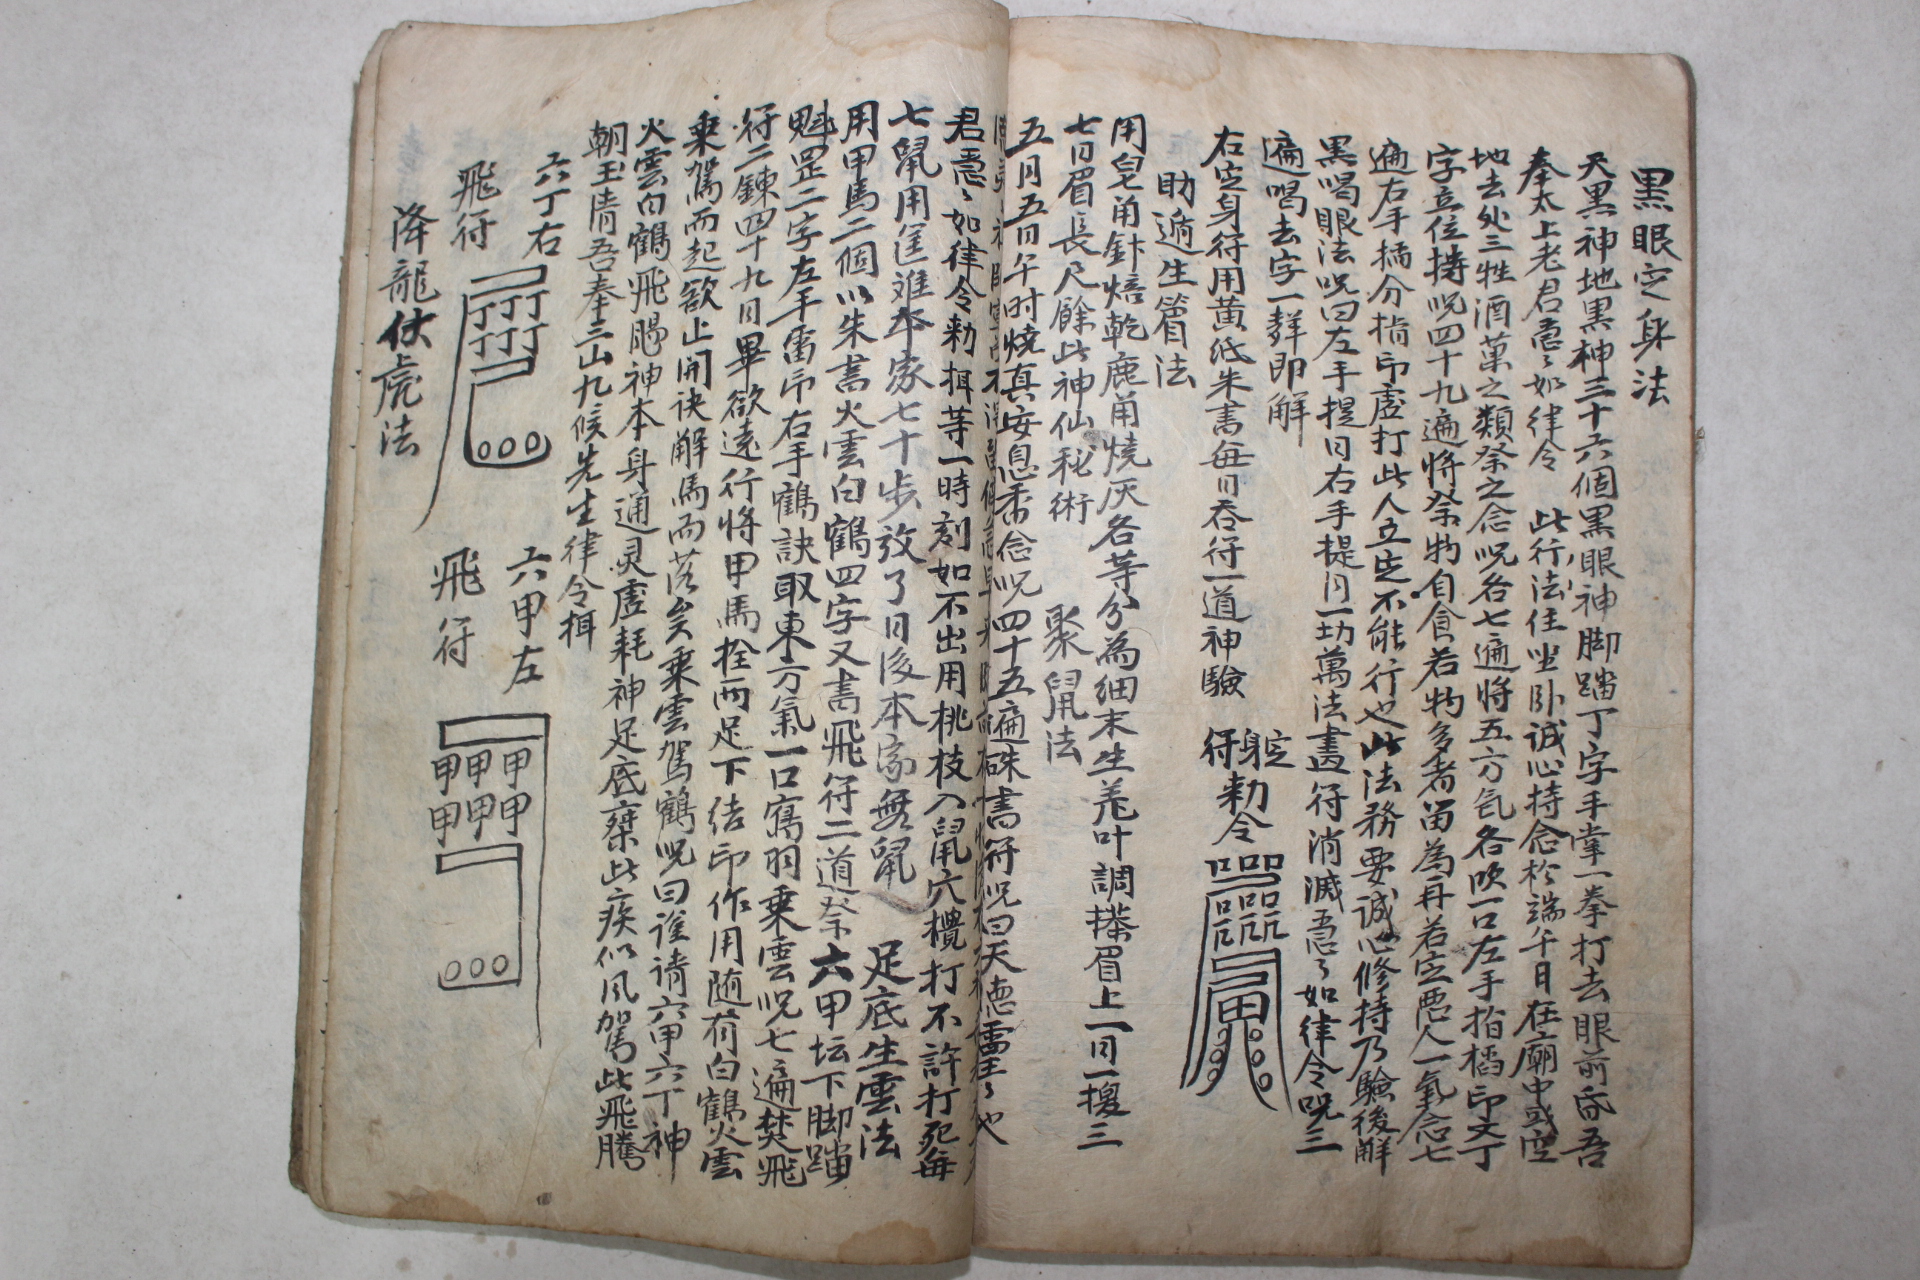 黑眼定身法
天黑神地黑神三十六個黑眼神脚踏丁字手掌一拳打去眼前昏吾
奉太上老君急〻如律令 此行法住坐卧誠心持念於端午日在廟中或空
地去处三牲酒菓之類祭之念呪各七遍將五方氣各吹一口左手指掐印文丁
字立位持呪四十九遍將祭物自食若物多者留為再若定惡人一氣念七
遍右手掐分指印虛打此人立定不能行也此法務要誠心修持乃驗後解
黑喝眼法呪曰左手提日右手提月一切萬法書符消滅急〻如律令呪三
遍喝去字一聲即解
右定身符用黃紙朱書每日吞符一道神驗
定身符
勅令
助遁生眉法
用皂角針焙乾鹿角燒灰各等分為細末生羌叶調搽眉上一日一換三
七日眉長尺餘此神仙秘術
聚鼠法
五月五日午时燒真安息香念呪四十五遍硃書符呪曰天德
君急〻如律令勅揖等一時刻如不出用桃枝入鼠穴攪打不許打死每
七鼠用筐進本家七十步放了日後本家無鼠
足底生雲法
用甲馬二個以朱書火雲白鶴四字又書飛符二道祭六甲坛下脚踏
魁罡二字左手雷印右手鶴訣取東方氣一口寫羽乘雲呪七遍焚飛
符二鍊四十九日畢欲遠行將甲馬拴两足下结印作用随有白鶴火雲
乘駕而起欲止開诀解馬而落矣乘雲駕鶴呪曰谨请六甲六丁神
火雲白鶴飛腾神本身通灵虛耗神足底 此疾似风駕此飛騰
朝玉清吾奉三山九候先生律令揖
六丁右
飛符
丁丁丁丁丁丁
六甲左
飛符
甲甲甲甲甲甲
降龍伏虎法